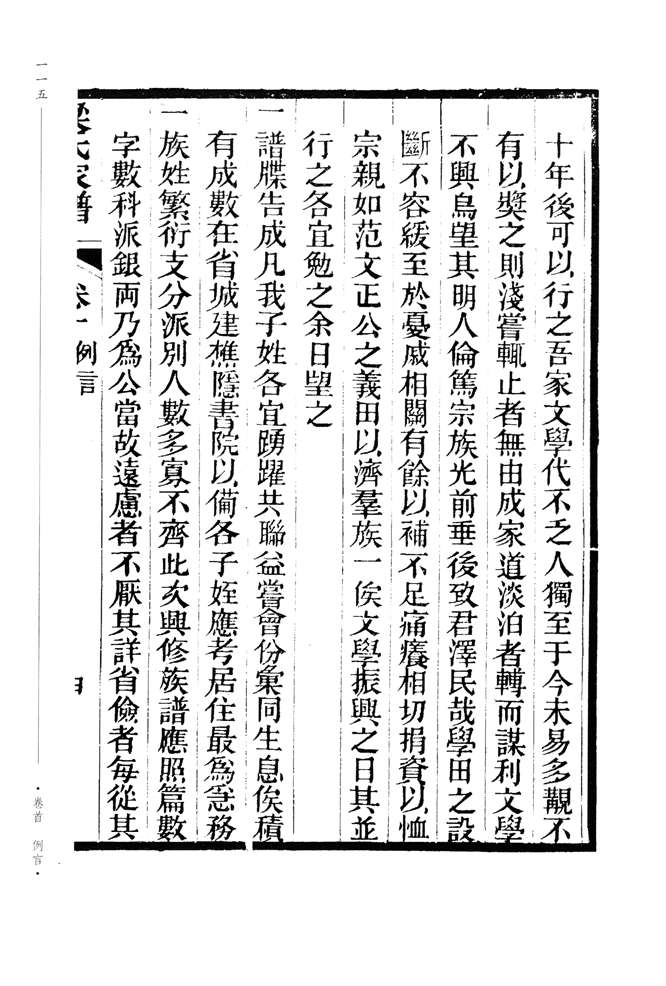 十年後可以行之吾家文學代不乏人獨至于今未易多覯不
有以奬之則淺嘗輒止者無由成家道淡泊者轉而謀利文學
不興烏望其明人倫篤宗族光前垂後致君澤民哉學田之設
斷不容緩至於憂戚相關有餘以補不足痛癢相切捐資以恤
宗親如范文正公之義田以濟羣族一俟文學振興之日其並
行之各宜勉之余日望之
一譜牒告成凡我子姓各宜踴躍共聯益嘗會份彙同生息俟積
有成數在省城建樵隱書院以俻各子姪應考居住最爲急務
一族姓繁衍支分派別人數多寡不齊此次興修族譜應照篇數
字數科派銀両乃爲公當故遠慮者不厭其詳省儉者每從其
氏家譜
卷十 例言
一一五
·卷首 例言·